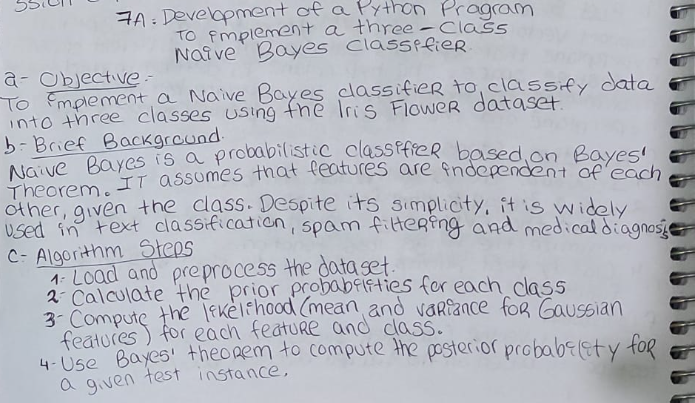 7A: Development of a Python Program
To implement a three-Class
Naive Bayes Classifier
a- Objective:-
To implement a Naive Bayes classifier to classify data
into three classes using the Iris Flower dataset.
b- Brief Background.
Naive Bayes is a probabilistic classifier based on Bayes'
Theorem. IT assumes that features are independent of each
other, given the class. Despite its simplicity, it is widely
Used in text classification, spam filtering and medical diagnosis
C- Algorithm Steps
1- Load and preprocess the dataset.
2- Calculate the prior probabilities for each class
3- Compute the likelihood (mean and variance for Gaussian
features) for each feature and class.
4- Use Bayes' theorem to compute the posterior probability for
a given test instance.